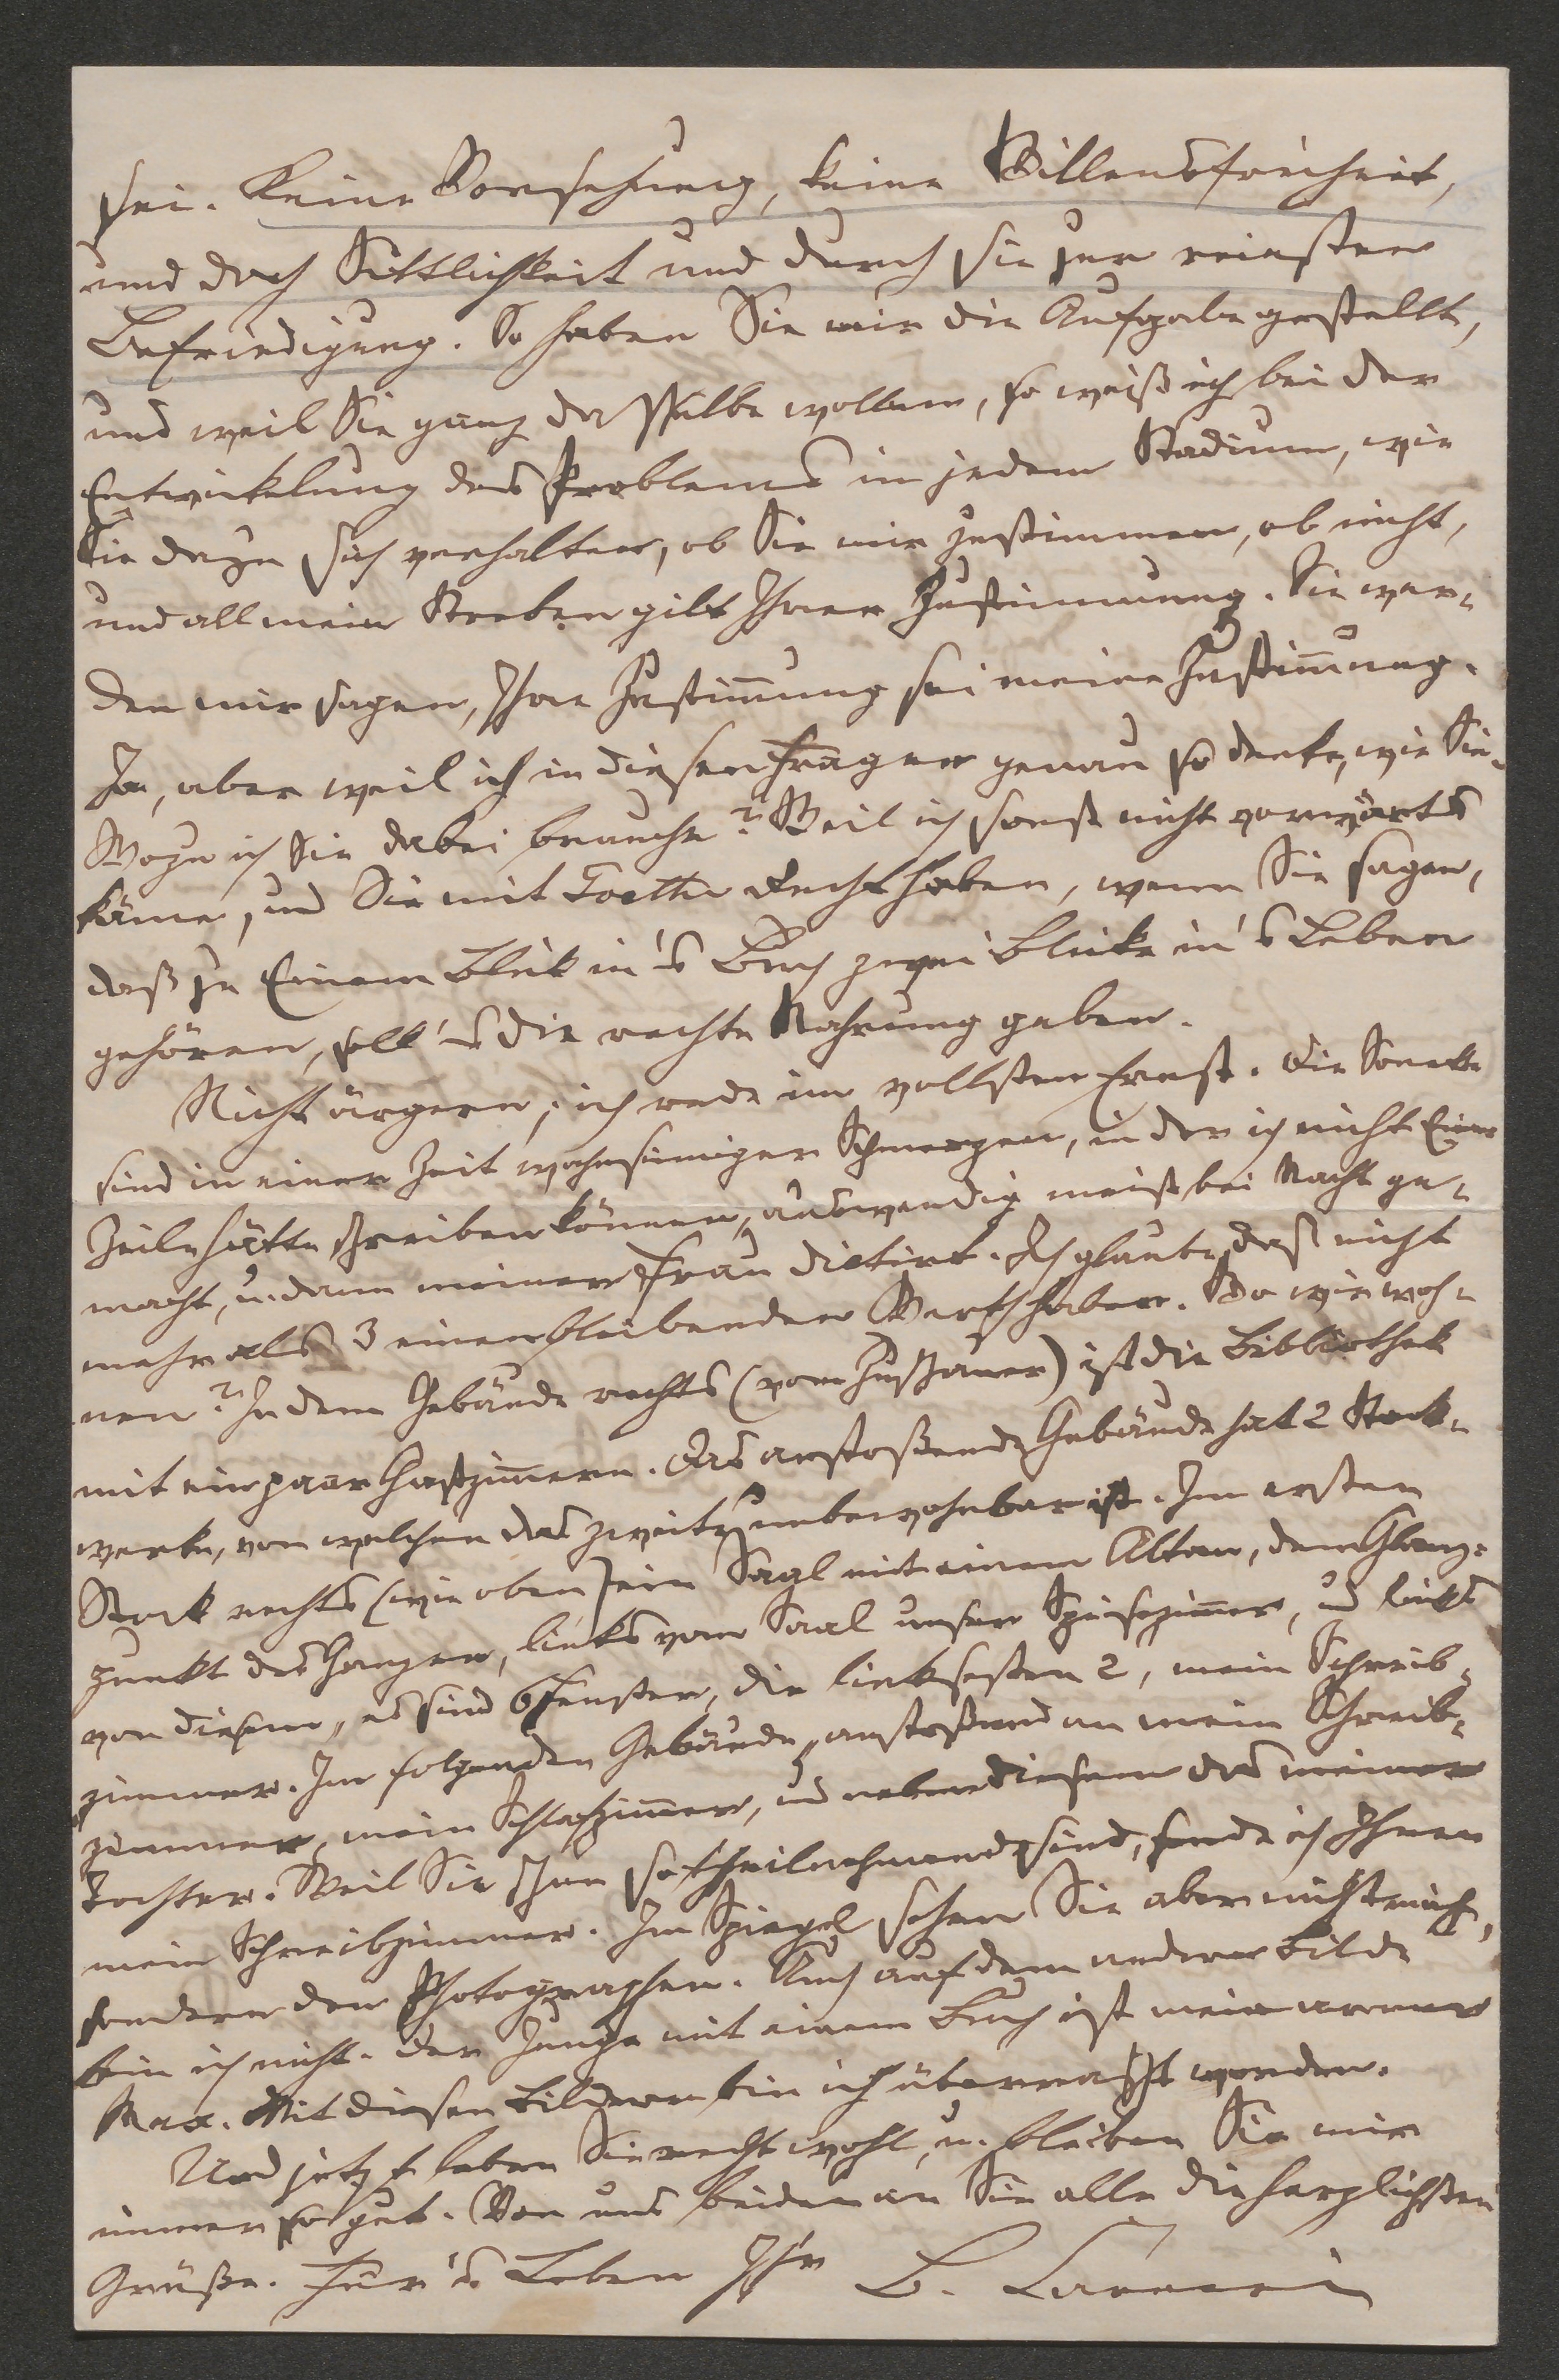 sei. Keine Vorsehung, keine Willensfreiheit,
und doch Sittlichkeit und durch sie zur reinsten
Befriedigung. So haben Sie mir die Aufgabe gestellt,
und weil Sie ganz dasselbe wollen, so weiß ich bei der
Entwickelung des Problems in jedem Stadium, wie
Sie dazu sich verhalten, ob Sie mir zustimmen, ob nicht,
und all mein Streben gilt Ihrer Zustimmung. Sie wer-
den mir sagen, Ihre Zustimmung sei meine Zustimmung.
Ja, aber weil ich in diesen Fragen genau so denke, wie Sie.
Wozu ich Sie dabei brauche? Weil ich sonst nicht vorwärts
käme, und Sie mit Goethe Recht haben, wenn Sie sagen,
daß zu Einem Blick in's Buch zwei Blicke in's Leben
gehören, soll's die rechte Nahrung geben.
Nicht ärgern; ich rede im vollsten Ernst. Die Sonette
sind in einer Zeit wahnsinniger Schmerzen, in der ich nicht Eine
Zeile hätte schreiben können, auswendig meist bei Nacht ge-
macht, u. dann meiner Frau dictirt. Ich glaube, daß nicht
mehr als 3 einen bleibenden Werth haben. Wo wir woh-
nen? In dem Gebäude rechts (vom Zuschauer) ist die Bibliothek
mit ein paar Gastzimmern. Das anstoßende Gebäude hat 2 Stock-
werke, von welchen das zweite unbewohnbar ist. Im ersten
Stock rechts (wie oben) ein Saal mit einem Altan, dem Glanz-
punkt des Ganzen, links vom Saal unser Speisezimmer, und links
von diesem, es sind 6 Fenster, die linksesten 2, mein Schreib-
zimmer. Im folgenden Gebäude, anstoßend an mein Schreib-
zimmer, mein Schlafzimmer, und neben diesem das meiner
Tochter. Weil Sie schon so theilnehmend sind, sende ich Ihnen
mein Schreibzimmer. Im Spiegel sehen Sie aber nicht mich,
sondern den Photographen. Auch auf dem andern Bilde
bin ich nicht. Der Junge mit einem Buch ist mein armer
Max. Mit diesen Bildern bin ich überrascht worden.
Und jetzt leben Sie recht wohl, u. bleiben Sie mir
immer so gut. Von uns beiden an Sie alle die herzlichsten
Grüße. Für's Leben Ihr B. Carneri